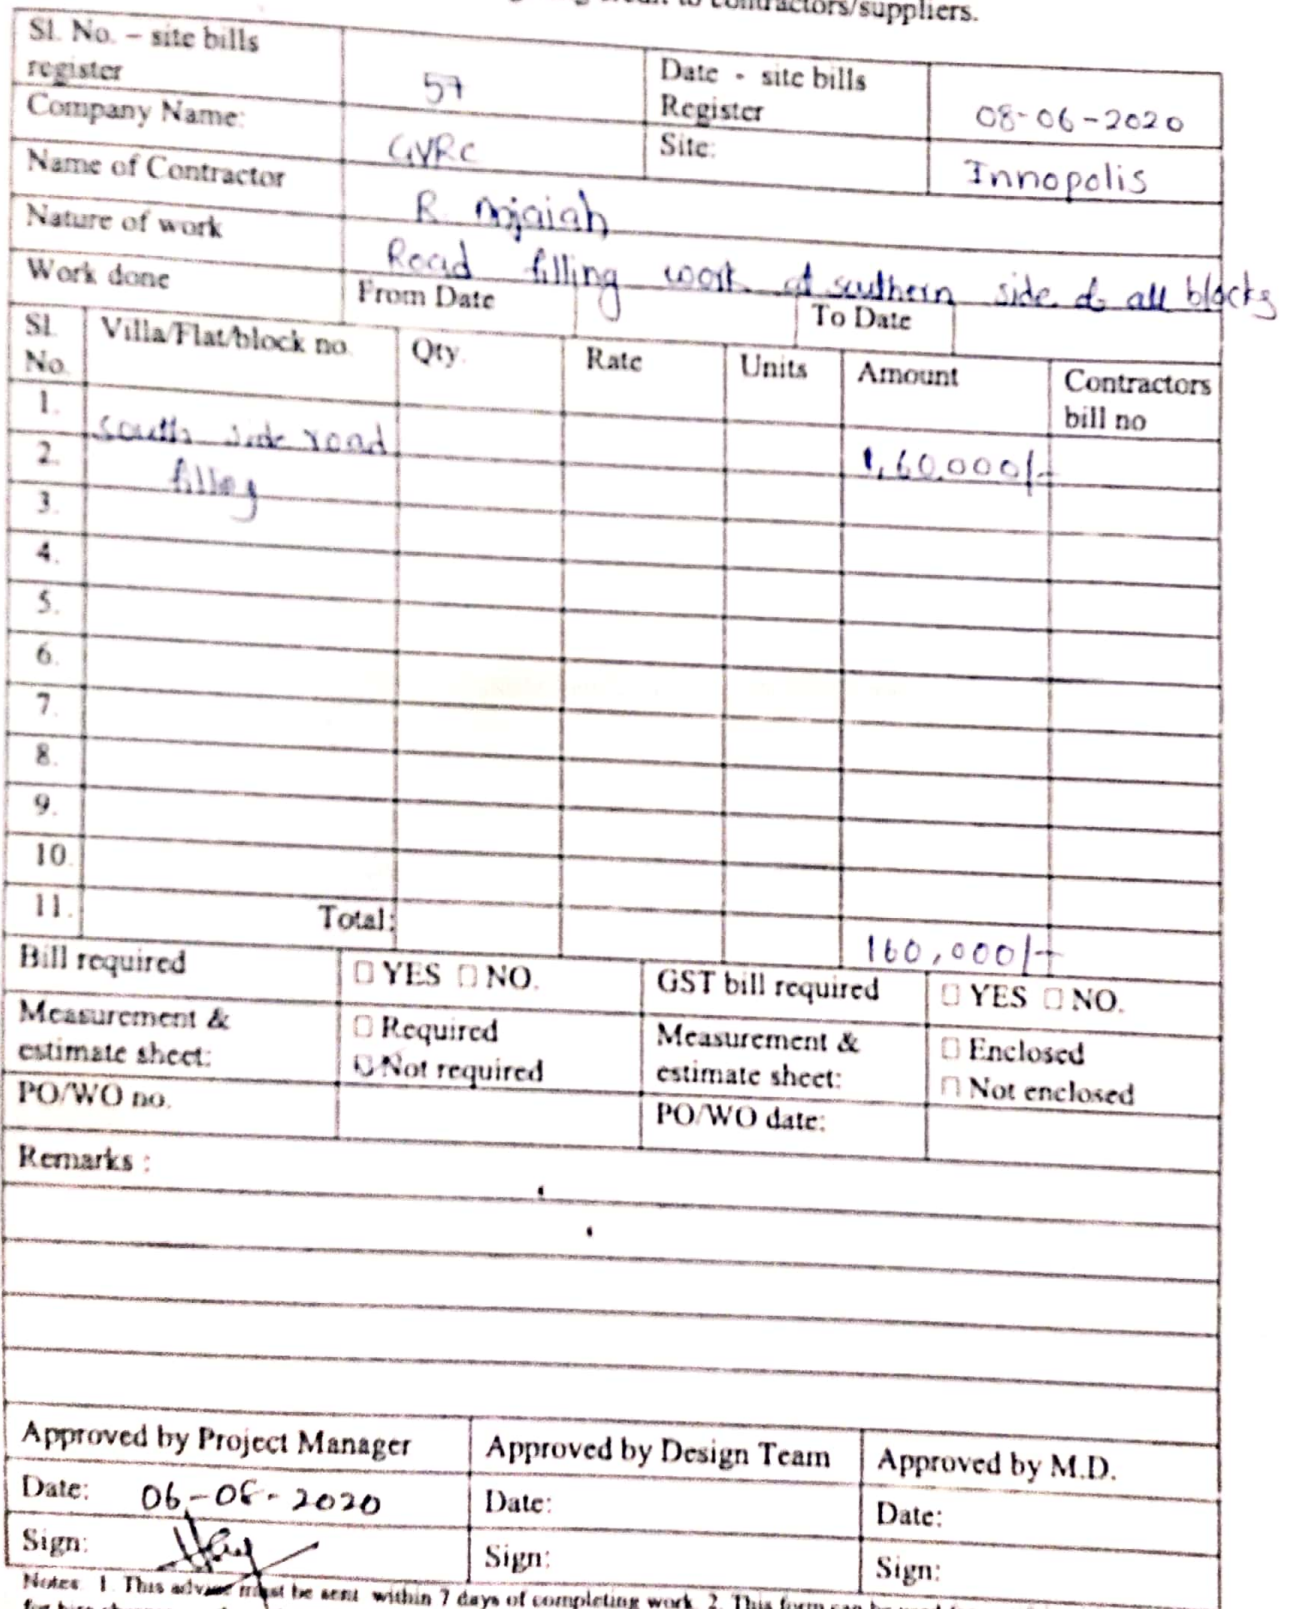 to contractors/suppliers.
Sl. No. – site bills register 57 Date - site bills Register 08-06-2020
Company Name: GVRC Site: Innopolis
Name of Contractor R
Nature of work Road filling work at southern side of all blocks
Work done From Date To Date
Sl. No. Villa/Flat/block no. Qty. Rate Units Amount Contractors bill no
1. south side road 1,60,000/-
2. filling
3.
4.
5.
6.
7.
8.
9.
10.
11. Total: 160,000/-
Bill required □ YES □ NO. GST bill required □ YES □ NO.
Measurement & estimate sheet: □ Required □ Not required Measurement & estimate sheet: □ Enclosed □ Not enclosed
PO/WO no. PO/WO date:
Remarks :
Approved by Project Manager Approved by Design Team Approved by M.D.
Date: 06-06-2020 Date: Date:
Sign: Sign: Sign:
Notes: 1. This advise must be sent within 7 days of completing work. 2. This form can be